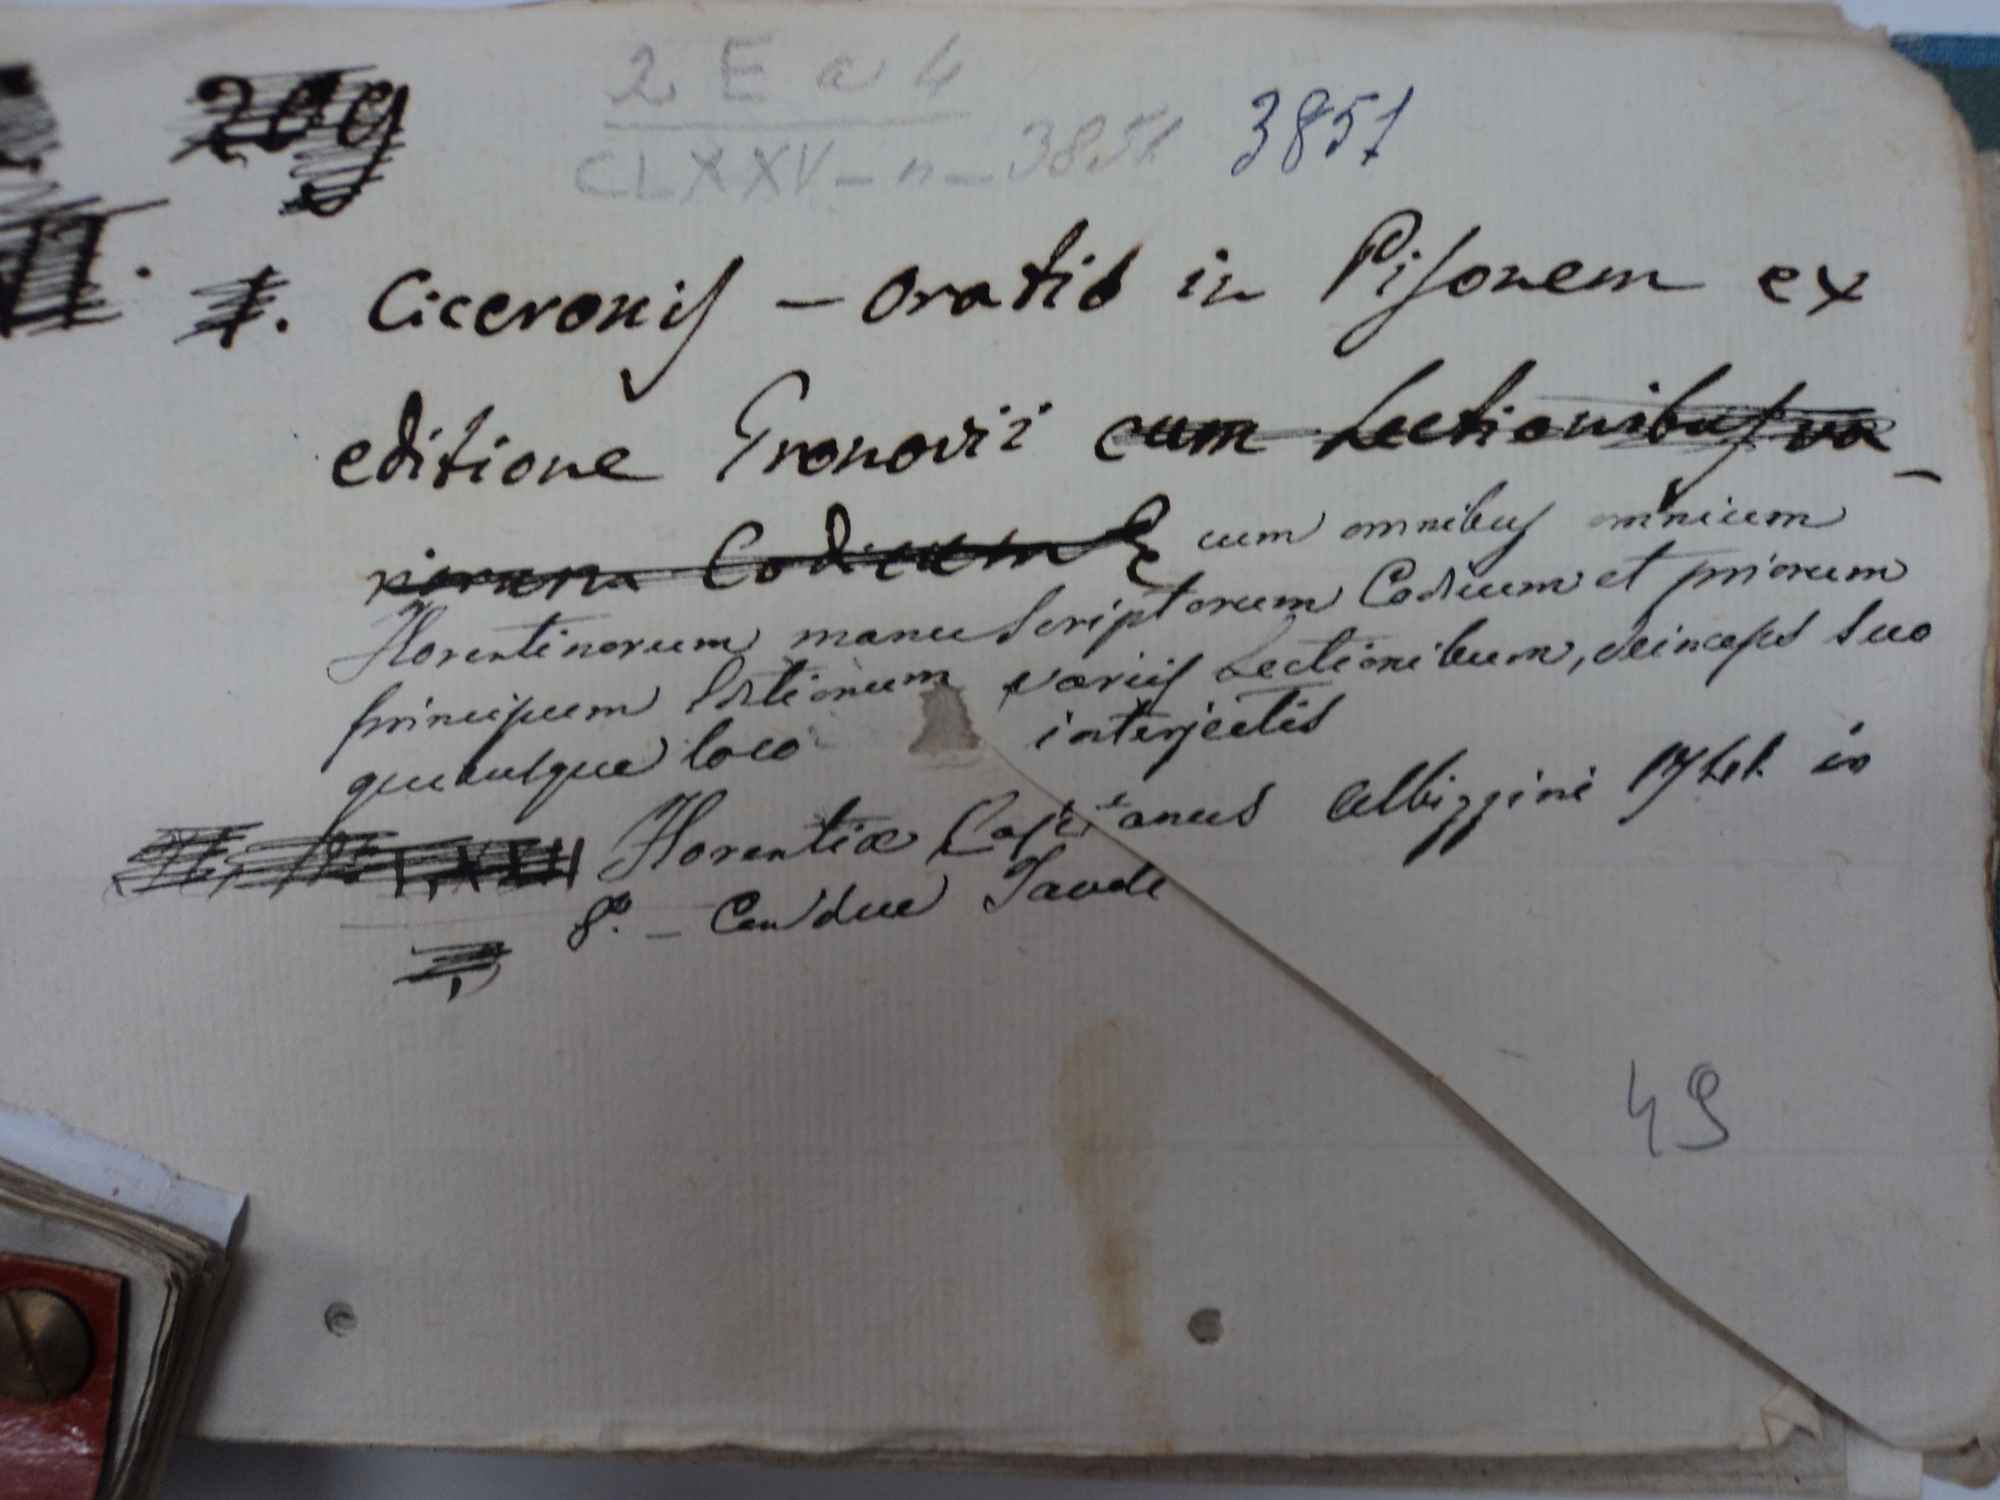 209
2 E a 4
CLXXV - n - 3851 3851
I. Ciceronis - Oratio in Pisonem ex
editione Gronovii cum Lectionibus va-
riorum Codicum cum omnibus omnium
Florentinorum manu Scriptorum Codicum et priorum
principum Editionum variis Lectionibum, deinceps suo
quibusque loco interjectis
Florentiæ Albizzini in
8º. - Con due Tavole
49